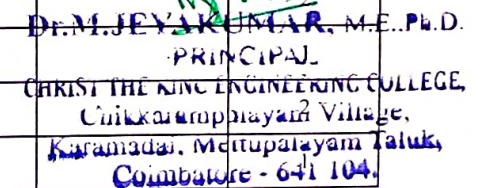 Dr.M.JEYAKUMAR, M.E.,Ph.D.
PRINCIPAL
CHRIST THE KING ENGINEERING COLLEGE,
Chikkarampalayam Village,
2
Karamadai, Mettupalayam Taluk,
Coimbatore - 641 104.
1